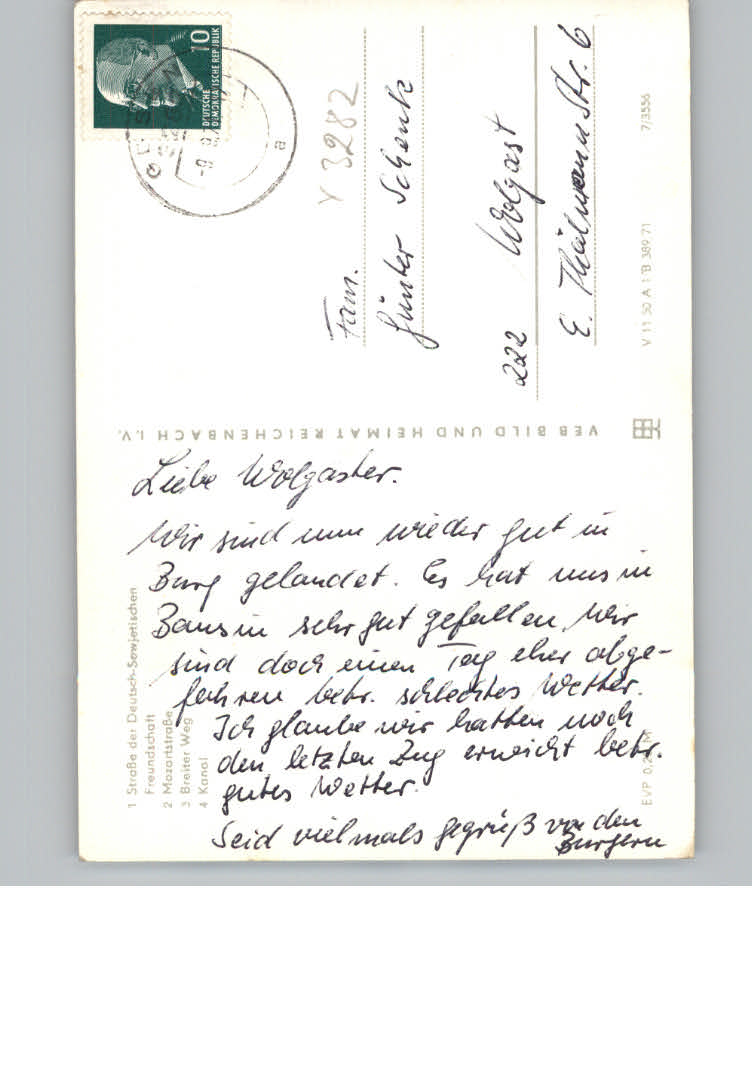 Liebe Wolgaster.
Wir sind nun wieder gut in
Burg gelandet. Es hat uns in
Bansin sehr gut gefallen, wir
sind doch einen Tag eher abge-
fahren betr. schlechtes Wetter.
Ich glaube wir hatten noch
den letzten Zug erwischt betr.
gutes Wetter.
Seid vielmals gegrüß von den
Burgern
1 Straße der Deutsch-Sowjetischen
Freundschaft
2 Mozartstraße
3 Breiter Weg
4 Kanal
VEB BILD UND HEIMAT REICHENBACH I.V.
Y 3282
Fam.
Günter Schenk
222 Wolgast
E. Thälmann Str. 6
V 11 50 A 1 B 389 71
7/3556
10
DEUTSCHE
DEMOKRATISCHE REPUBLIK
a